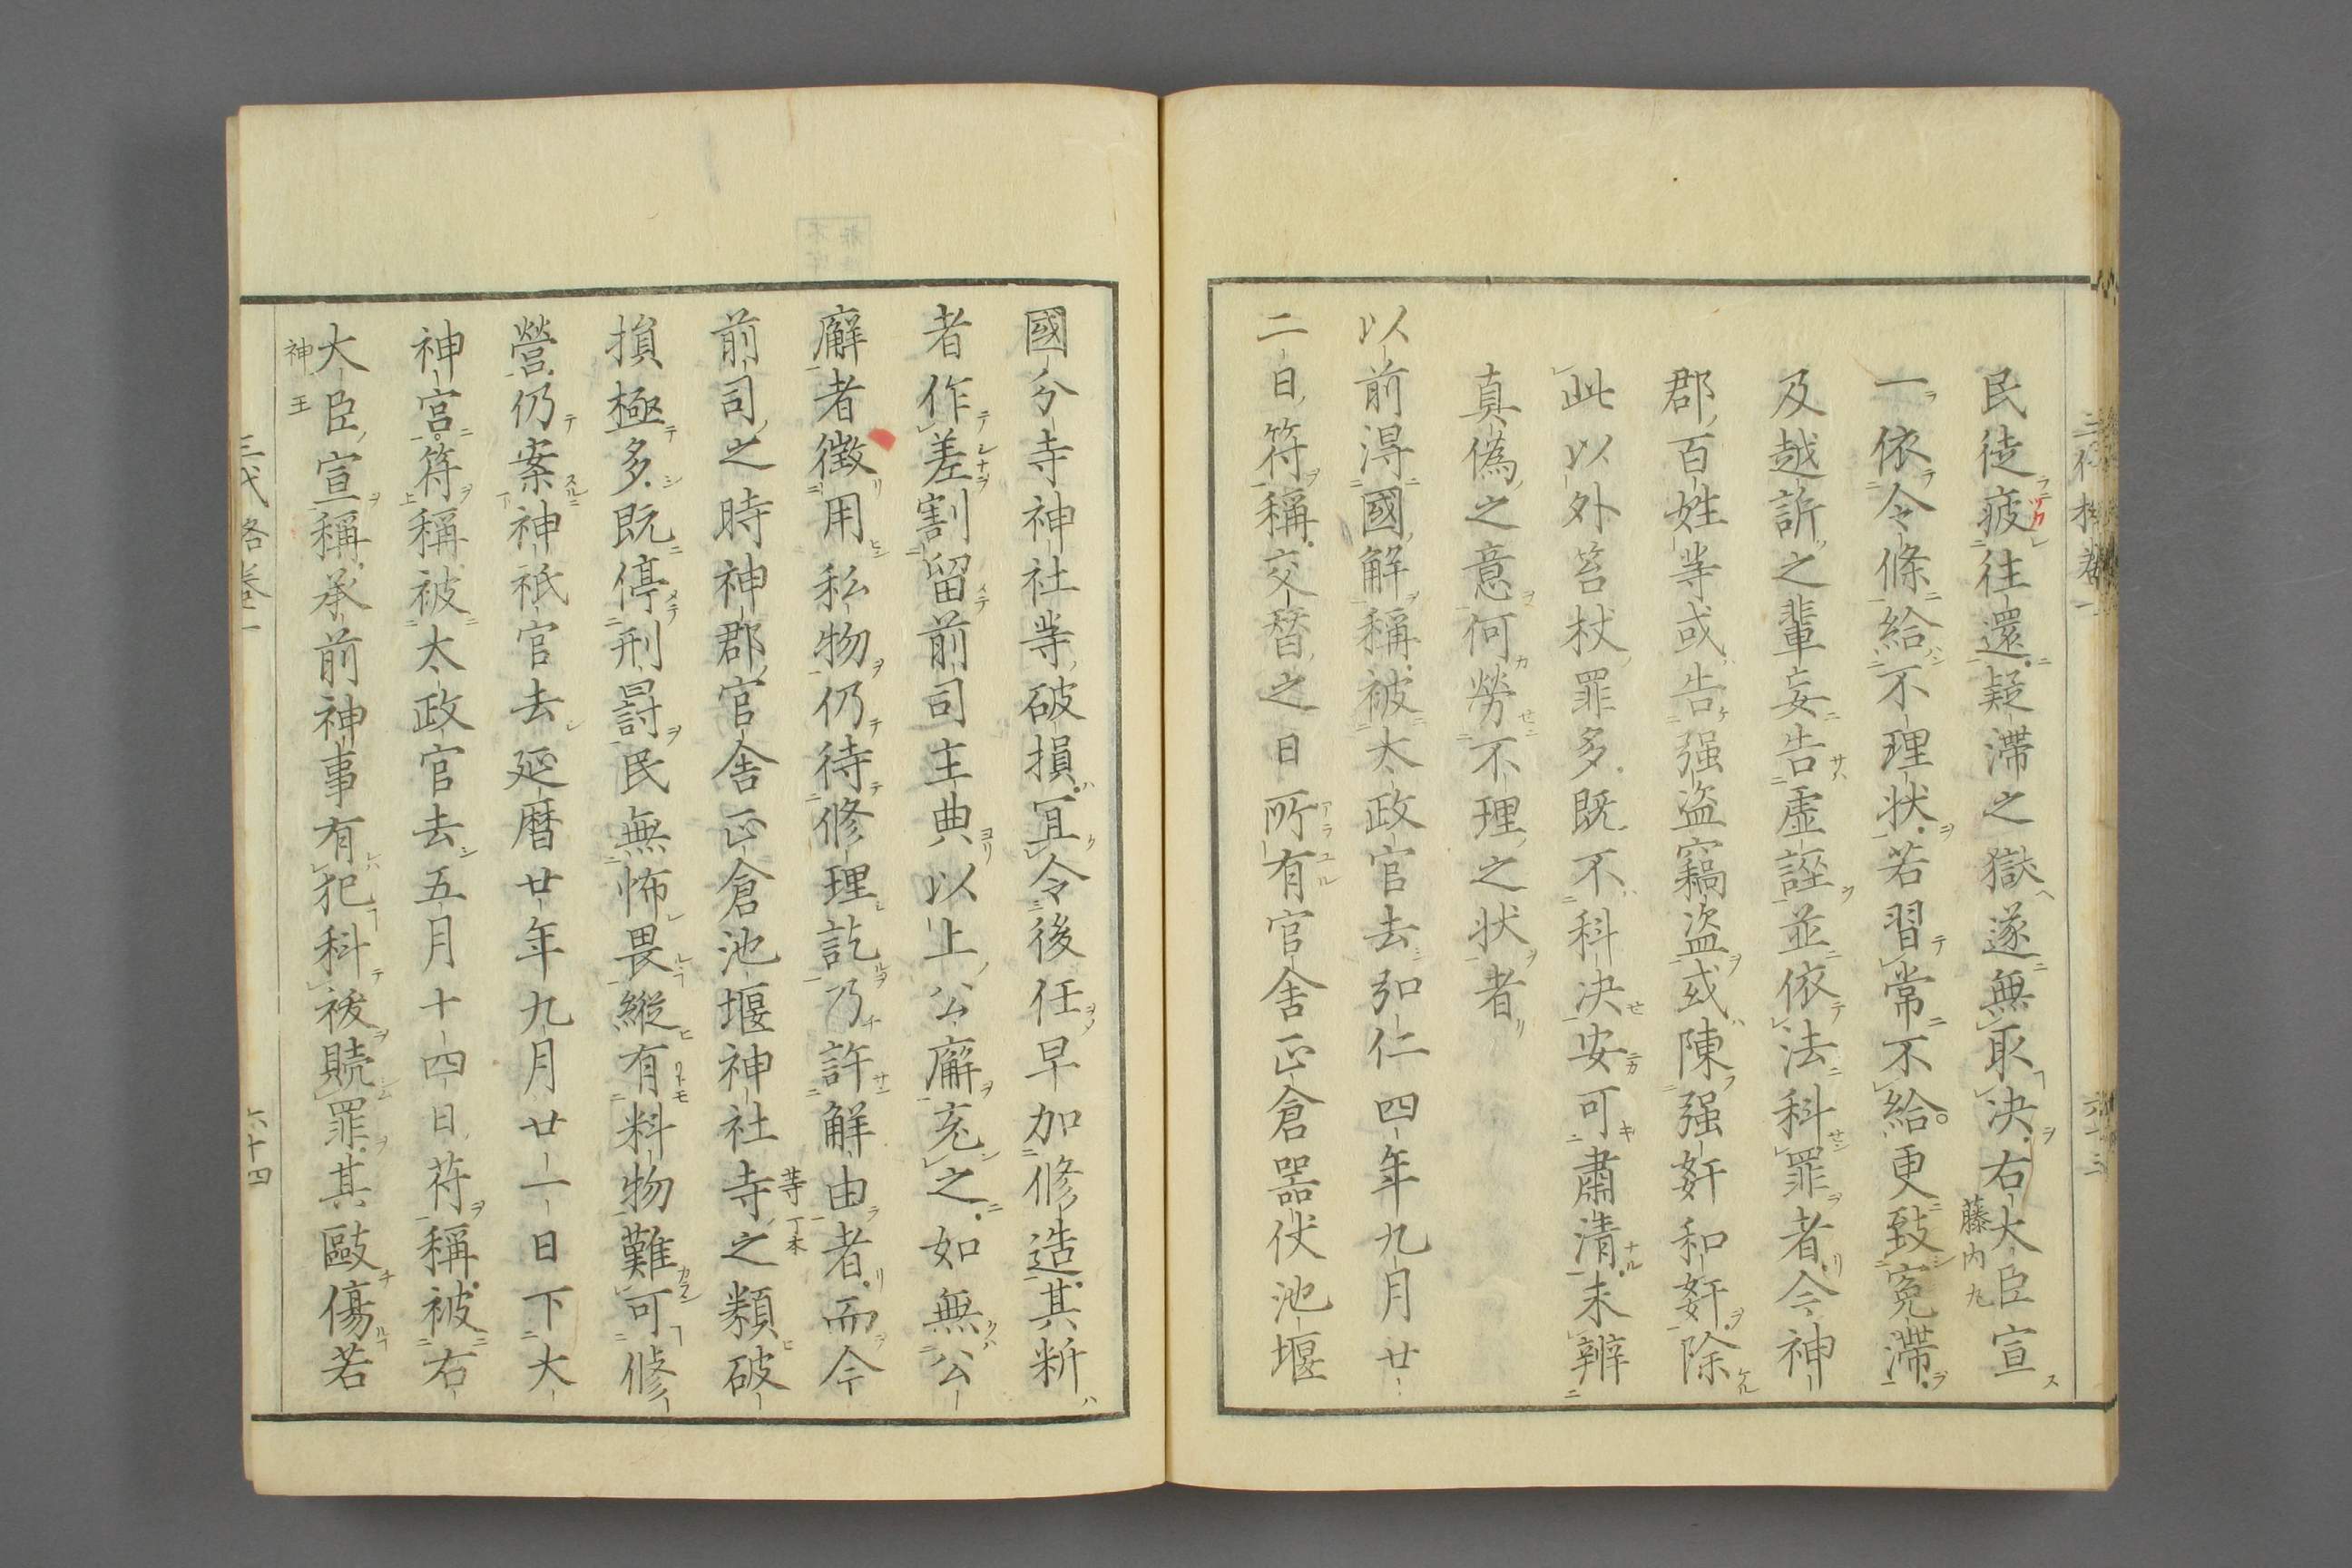 民徒疲往還疑滯之獄遂無取决右大臣宣
藤内九
一依令條給不理状若習常不給更致寃滯
及越訴之輩妄告虚誣並依法科罪者今神
郡百姓等或告强盗竊盗或陳强奸和姧除
此以外笞杖罪多既不科决安可肅清未辨
真偽之意何勞不理之状者
以前得國解稱被太政官去弘仁四年九月廿
二日符稱交替之日所有官舎正倉器仗池堰
國分寺神社等破損冝令後任早加修造其斨
者作差割留前司主典以上公廨充之如無公
廨者徴用私物仍待修理訖乃許觧由者而今
前司之時神郡官舎正倉池堰神社寺之類破
等丁本
損極多既停刑罸民無怖畏縱有料物難可修
營仍案神祇官去延暦廿年九月廿一日下大
神宮符稱被太政官去五月十四日苻稱被右
大臣宣稱承前神事有犯科祓贖罪其毆傷若
神王
三代格卷一
六十四